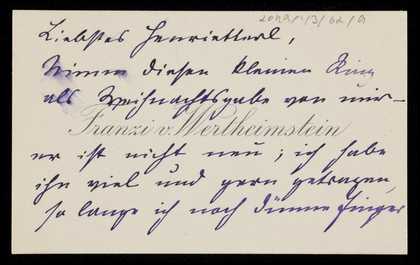 Liebstes Henrietterl,
Nimm diesen kleinen Ring
als Weihnachtsgabe von mir –
Franzi v. Wertheimstein
er ist nicht neu; ich habe
ihn viel und gern getragen,
so lange ich noch dünne Finger